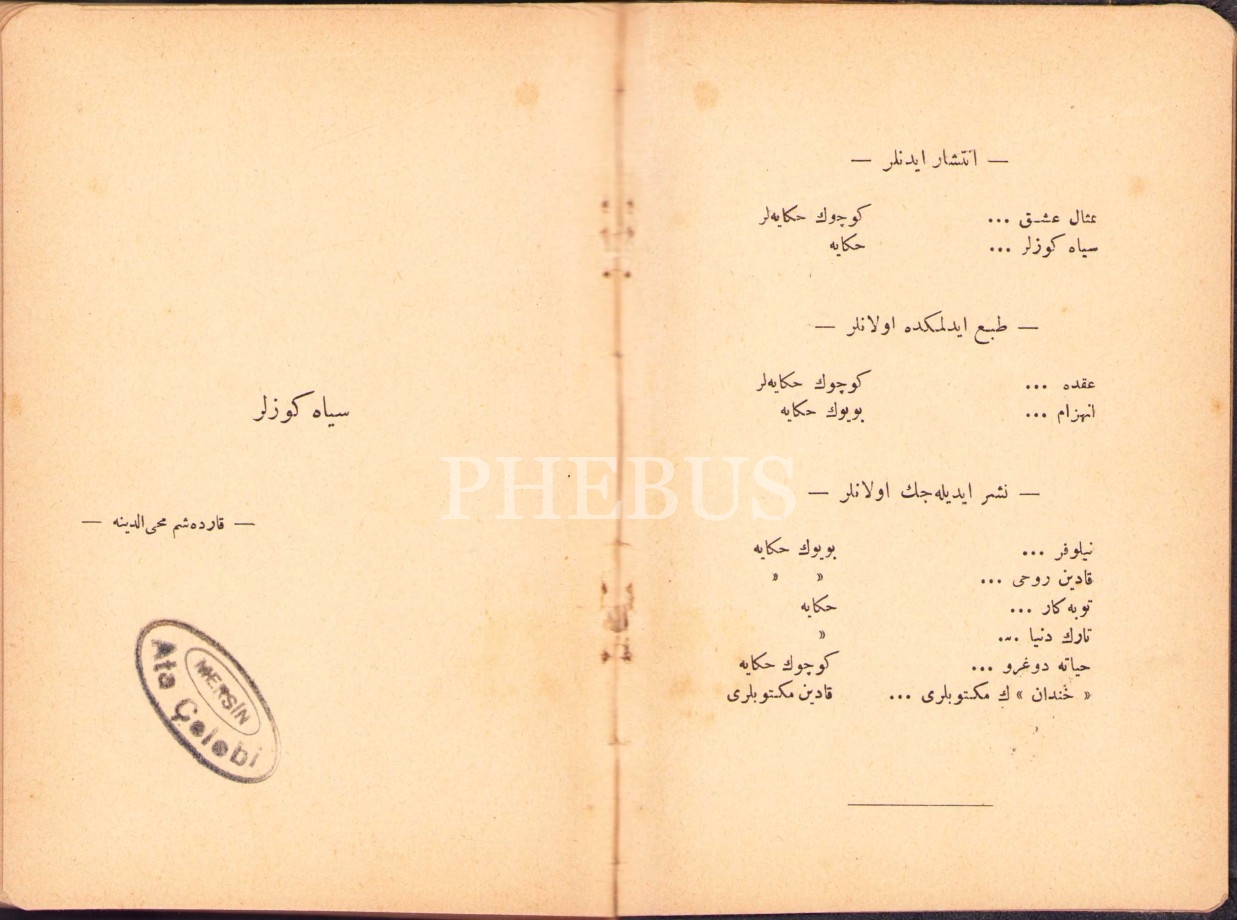 — انتشار ایدنلر —
تمثال عشق ... كوچوك حكایه‌لر
سیاه كوزلر ... حكایه
— طبع ایدلمكده اولانلر —
عقده ... كوچوك حكایه‌لر
انهزام ... بویوك حكایه
— نشر ایدیله‌جك اولانلر —
نیلوفر ... بویوك حكایه
قادین روحی ... « «
توبه‌كار ... حكایه
تارك دنیا ... «
حیاته دوغرو ... كوچوك حكایه
« خندان » ك مكتوبلری ... قادین مكتوبلری
سیاه كوزلر
— قارده‌شم محی‌الدینه —
MERSİN
Ata Çelebi
PHEBUS